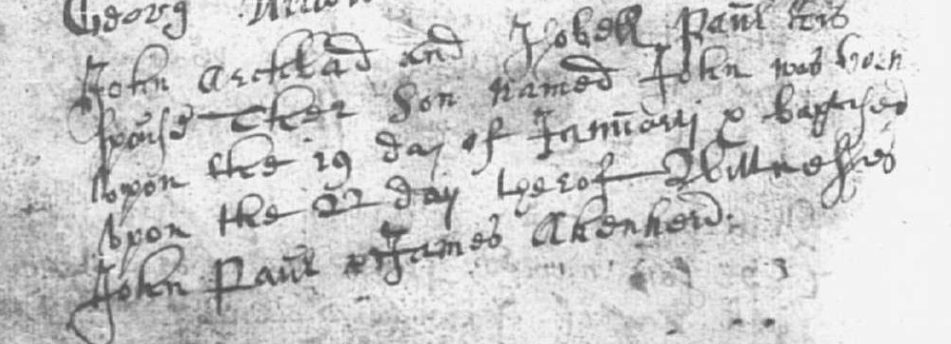 Georg
John Arcklad and Isobell Paul his
spouse Ther Son named John was born
upon the 19 day of Januarij & baptised
upon the 22 day therof Witnesses
John Paul & James Akenhead.